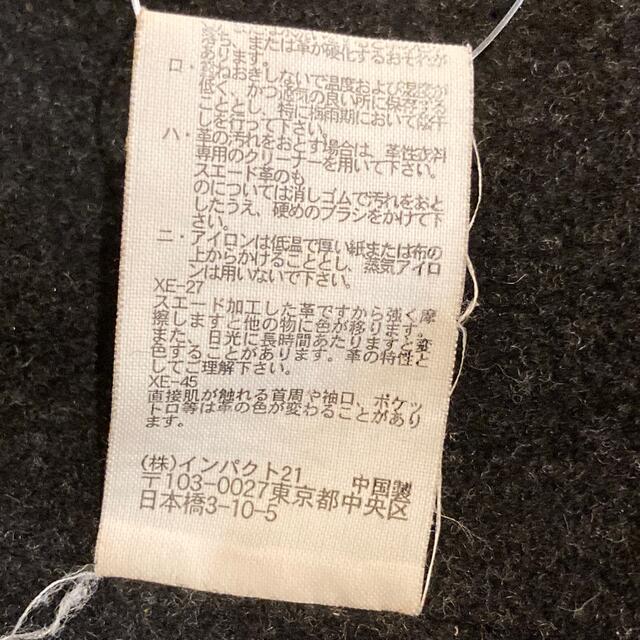 または革が硬化するおそれが
あります。
ロ・重ねおきしないで温度および湿度が
低く、かつ通気の良い所に保存する
こととし、特に梅雨期において陰干
しを行って下さい。
ハ・革の汚れをおとす場合は、革性衣料
専用のクリーナーを用いて下さい。
スエード革のも
のについては消しゴムで汚れをおと
したうえ、硬めのブラシをかけて下
さい。
ニ・アイロンは低温で厚い紙または布の
上からかけることとし、蒸気アイロ
ンは用いないで下さい。
XE-27
スエード加工した革ですから強く摩
擦しますと他の物に色が移ります。
また、日光に長時間あたりますと変
色することがあります。革の特性と
してご理解下さい。
XE-45
直接肌が触れる首周や袖口、ポケッ
トロ等は革の色が変わることがあり
ます。
(株)インパクト21 中国製
〒103-0027東京都中央区
日本橋3-10-5